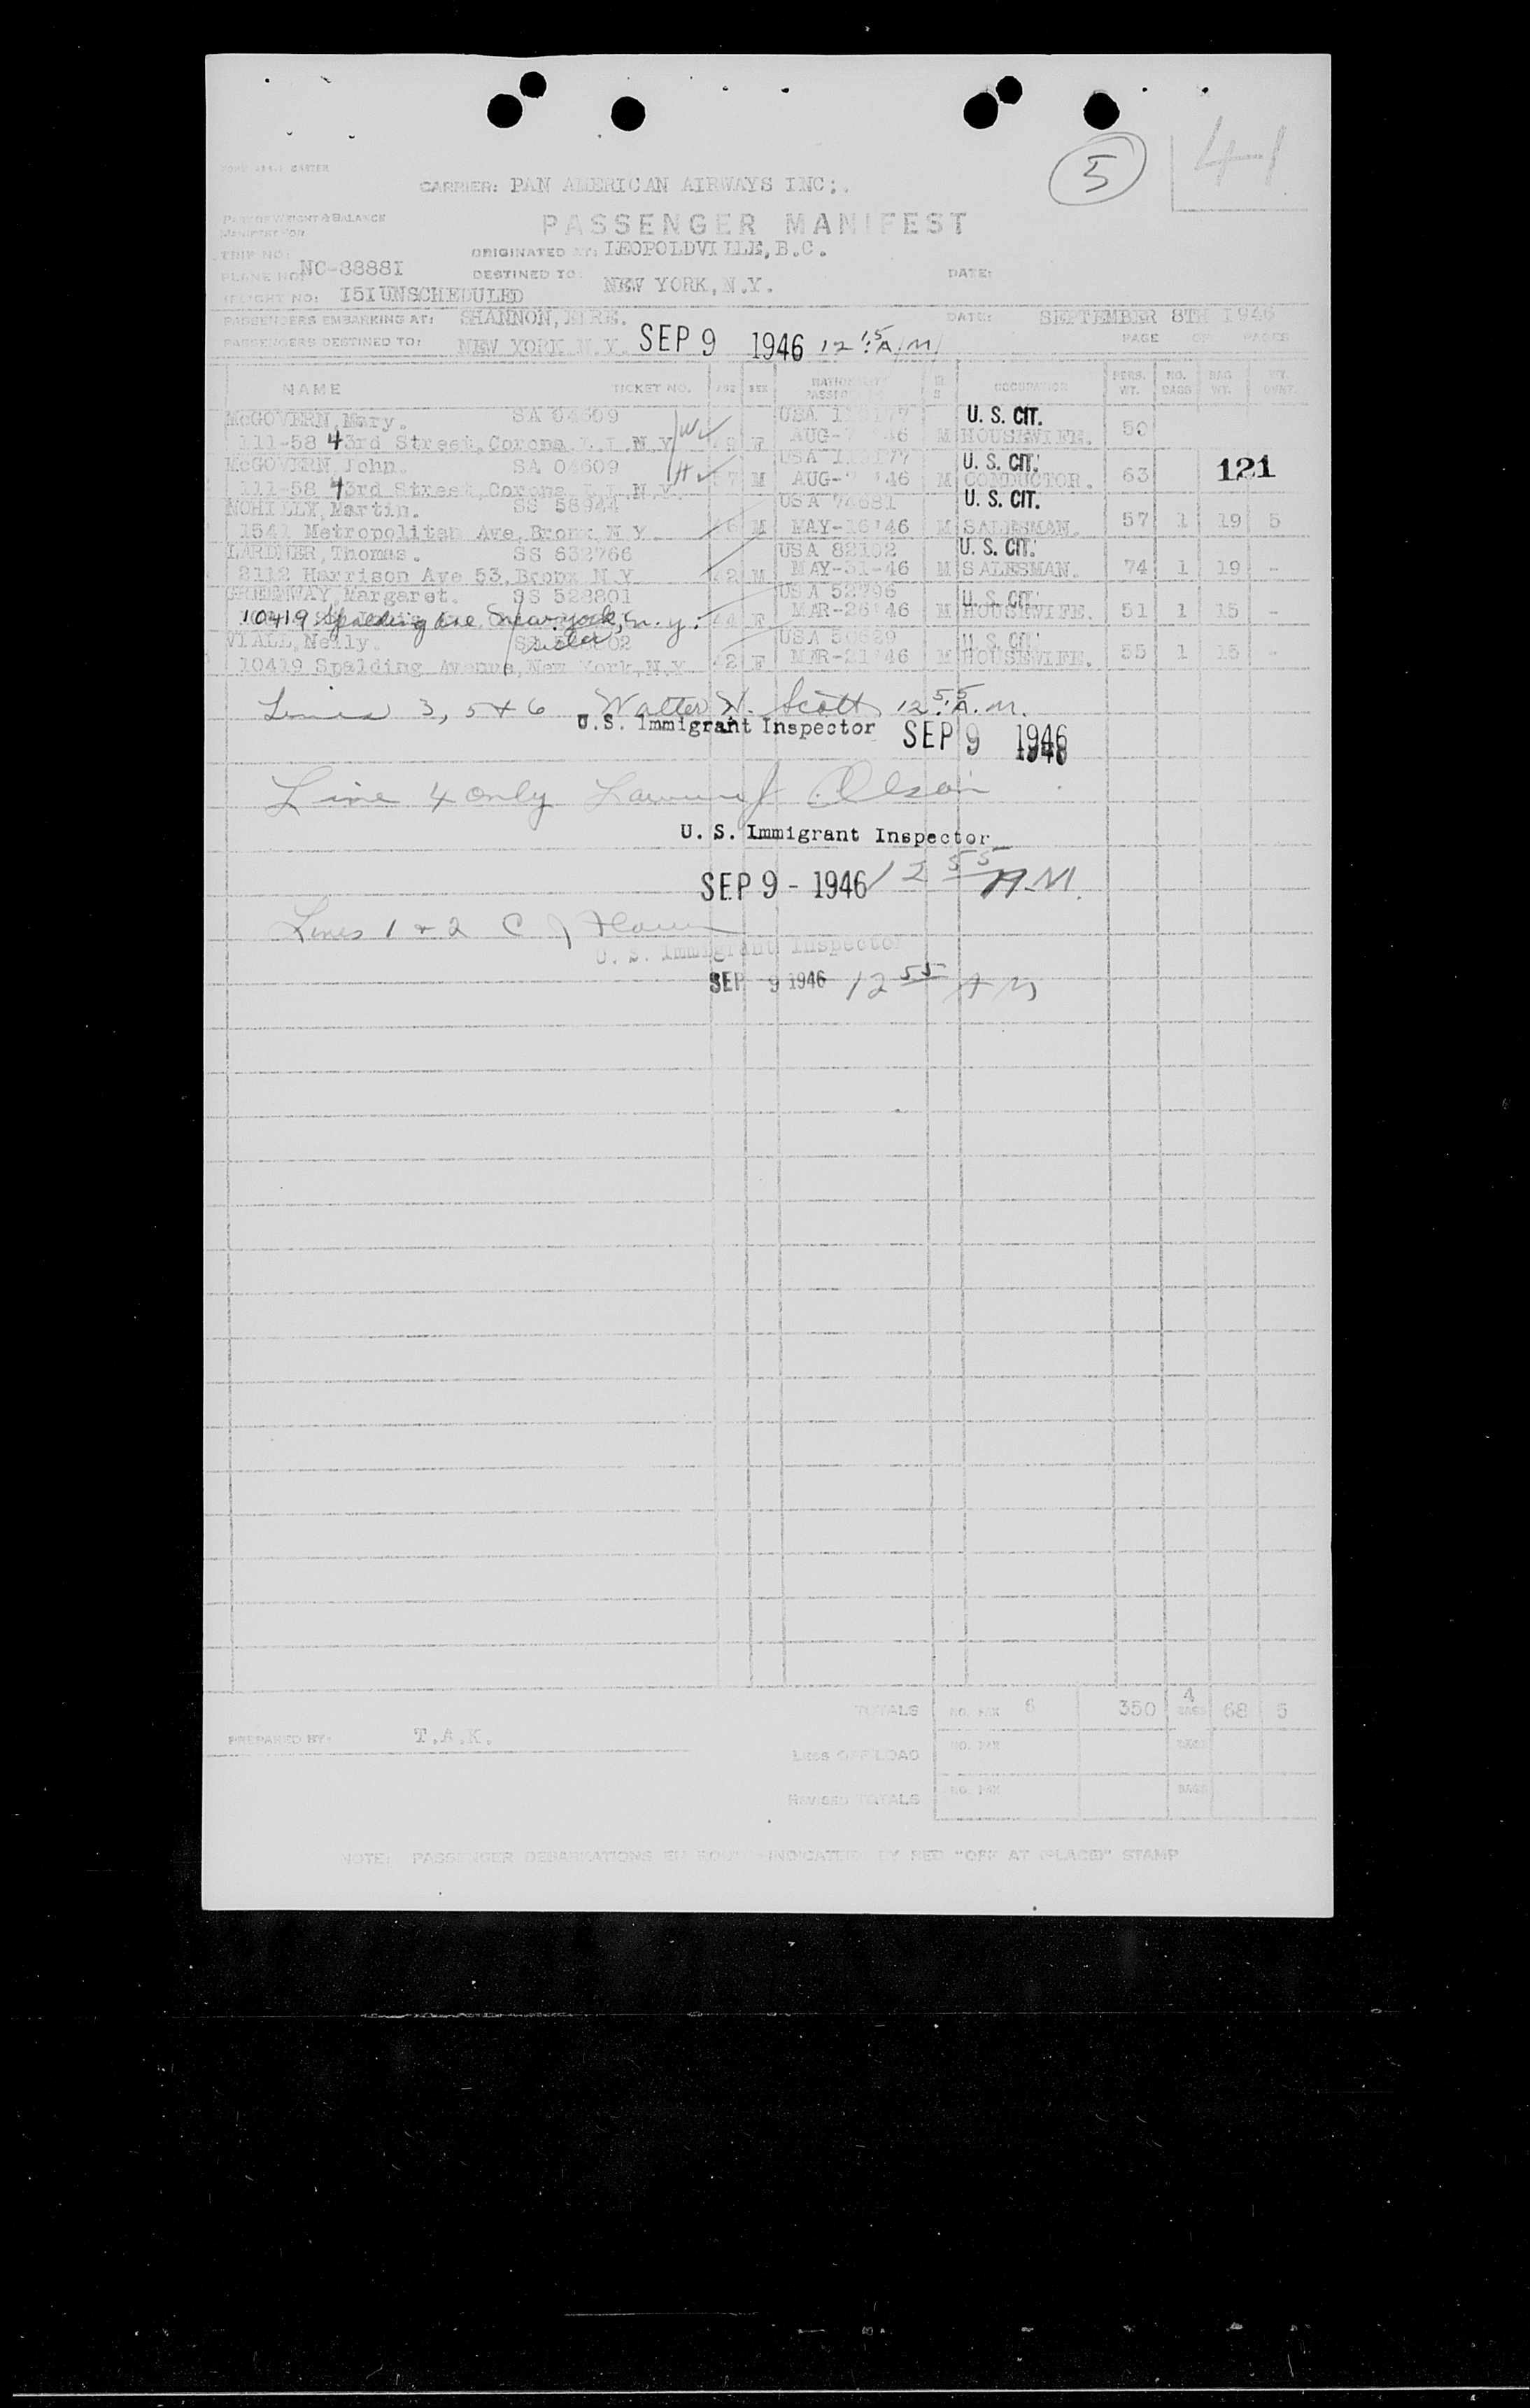 5
41
CARRIER: PAN AMERICAN AIRWAYS INC;.
PART OF WEIGHT & BALANCE
MANIFEST FOR
PASSENGER MANIFEST
TRIP NO:
ORIGINATED AT: LEOPOLDVILLE, B.C.
PLANE NO: NC-88881
DESTINED TO: NEW YORK, N.Y.
DATE:
FLIGHT NO: 151 UNSCHEDULED
PASSENGERS EMBARKING AT: SHANNON, EIRE.
DATE: SEPTEMBER 8TH 1946
PASSENGERS DESTINED TO: NEW YORK N.Y. SEP 9 1946 12:15 A.M.
PAGE OF PAGES
NAME TICKET NO. AGE SEX NATIONALITY PASSPORT OCCUPATION PERS. WT. NO. BAGS BAG WT.
McGOVERN, Mary. SA 04609 W USA U. S. CIT.
111-58 43rd Street, Corona L.I. N.Y F AUG- 46 M HOUSEWIFE. 50
McGOVERN, John. SA 04609 H USA U. S. CIT. 121
111-58 43rd Street, Corona L.I. N.Y. 57 M AUG- '46 M CONDUCTOR. 63
NOHILLY, Martin. SS 58944 USA 74681 U. S. CIT.
1541 Metropolitan Ave, Bronx N Y. M MAY-16'46 M SALESMAN. 57 1 19 5
LARDNER, Thomas. SS 632766 USA 82102 U. S. CIT.
2112 Harrison Ave 53, Bronx N.Y 42 M MAY-31-46 M SALESMAN. 74 1 19 -
GREENWAY, Margaret. SS 528801 USA 52796 U. S. CIT.
10419 Spalding Ave New York, N.Y. 44 F MAR-26'46 M HOUSEWIFE. 51 1 15 -
VIALL, Nelly. sister USA U. S. CIT.
10419 Spalding Avenue, New York, N.Y 42 F MAR-21'46 M HOUSEWIFE. 55 1 15 -
Lines 3, 5 + 6 Walter W. Scott 12:55 A.M.
U.S. Immigrant Inspector SEP 9 1946
Line 4 only Olson
U. S. Immigrant Inspector
SEP 9 - 1946 12 55 A.M.
Lines 1 + 2 C J
U. S. Immigrant Inspector
SEP 9 1946 12 55 A M
TOTALS NO. PAX 6 350 4 BAGS 68 5
PREPARED BY: T.A.K.
LESS OFF LOAD NO. PAX BAGS
REVISED TOTALS NO. PAX BAGS
NOTE: PASSENGER DEBARKATIONS EN ROUTE INDICATED BY RED "OFF AT (PLACE)" STAMP